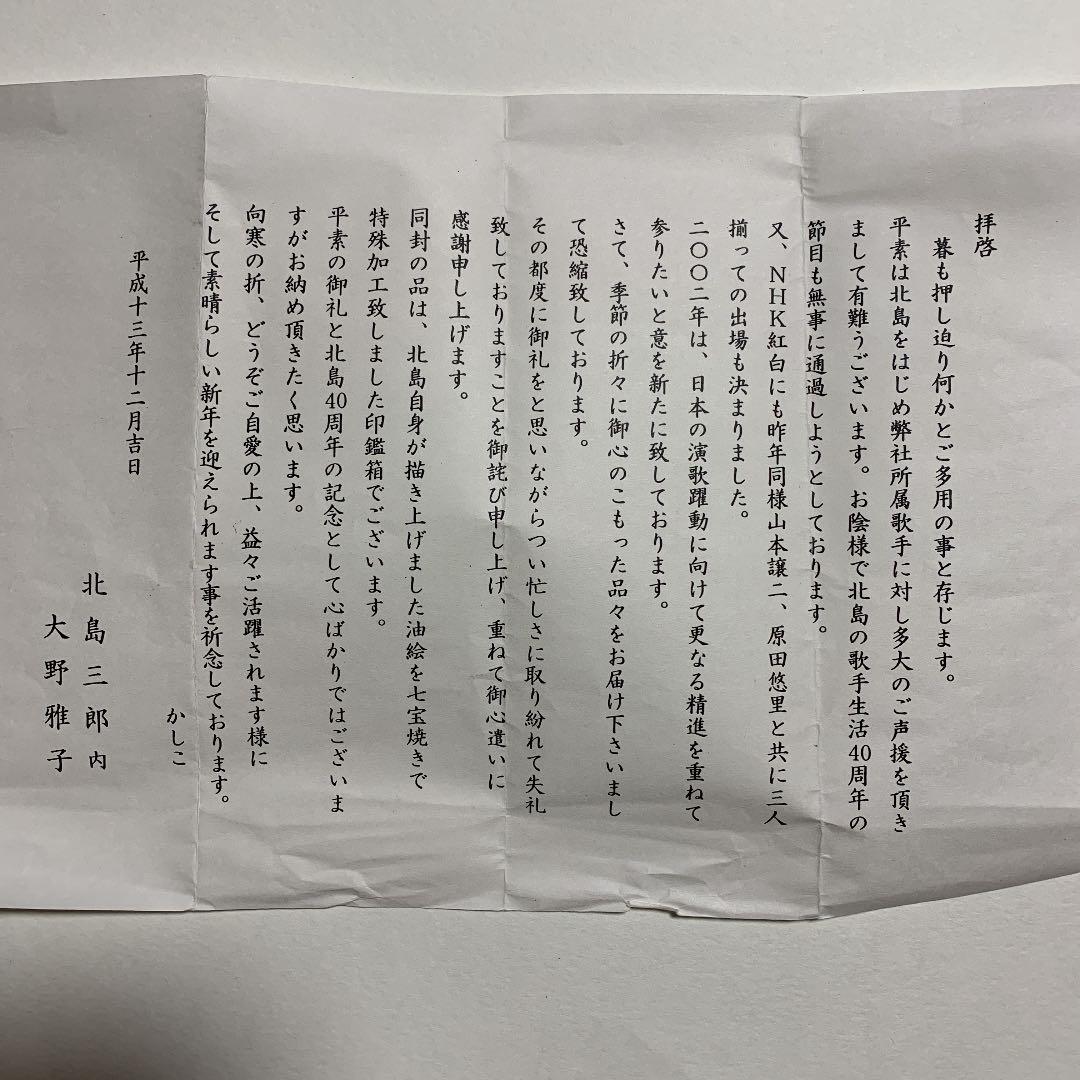 拝啓
暮も押し迫り何かとご多用の事と存じます。
平素は北島をはじめ弊社所属歌手に対し多大のご声援を頂き
まして有難うございます。お陰様で北島の歌手生活40周年の
節目も無事に通過しようとしております。
又、NHK紅白にも昨年同様山本譲二、原田悠里と共に三人
揃っての出場も決まりました。
二〇〇二年は、日本の演歌躍動に向けて更なる精進を重ねて
参りたいと意を新たに致しております。
さて、季節の折々に御心のこもった品々をお届け下さいまし
て恐縮致しております。
その都度に御礼をと思いながらつい忙しさに取り紛れて失礼
致しておりますことを御詫び申し上げ、重ねて御心遣いに
感謝申し上げます。
同封の品は、北島自身が描き上げました油絵を七宝焼きで
特殊加工致しました印鑑箱でございます。
平素の御礼と北島40周年の記念として心ばかりではございま
すがお納め頂きたく思います。
向寒の折、どうぞご自愛の上、益々ご活躍されます様に
そして素晴らしい新年を迎えられます事を祈念しております。
かしこ
平成十三年十二月吉日
北島三郎内
大野雅子